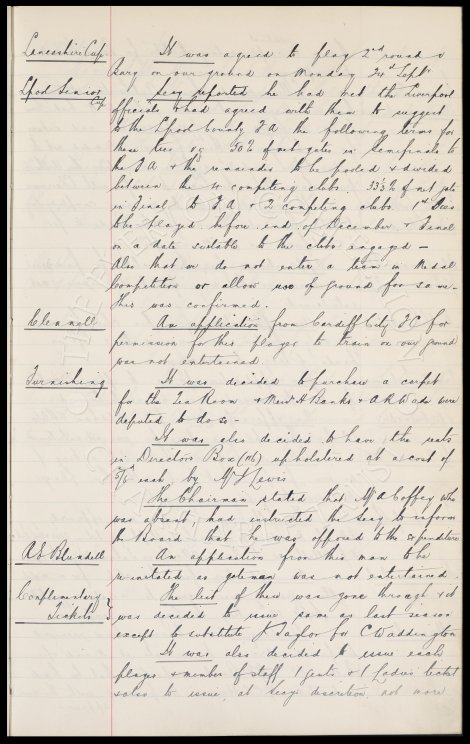 Lancashire Cup It was agreed to play 2nd round v
Bury on our ground on Monday 24th Septr
Lpool Senior Cup Secy reported he had met the Liverpool
officials & had agreed with them to suggest
to the Lpool County F A the following terms for
these ties 50% of net gates in Semifinals to
the F A & the remainder to be pooled & divided
between the 4 competing clubs. 33⅓% of net gate
in Final to F A & 2 competing clubs 1st
to be played before end of December & Final
on a date suitable to the clubs engaged —
Also that we do not enter a team in Medal
Competition or allow use of ground for same.
This was confirmed.
Clennell An application from Cardiff City FC for
permission for this player to train on our ground
was not entertained.
Furnishing It was decided to purchase a carpet
for the Tea Room & Messrs H Banks & A R Wade were
deputed to do so —
It was also decided to have the seats
in Directors Box (16) upholstered at a cost of
5/6 each by Mr Lewis
The Chairman stated that Mr A Coffey who
was absent, had instructed the Secy to inform
the Board that he was opposed to the expenditure
Blundell An application from this man to be
reinstated as gateman was not entertained.
Complimentary Tickets } The list of these was gone through & it
was decided to issue same as last season
except to substitute J Taylor for C Waddington
It was also decided to issue each
player & member of staff 1 gents & 1 Ladies ticket
& also to issue, at Secy's discretion, not more